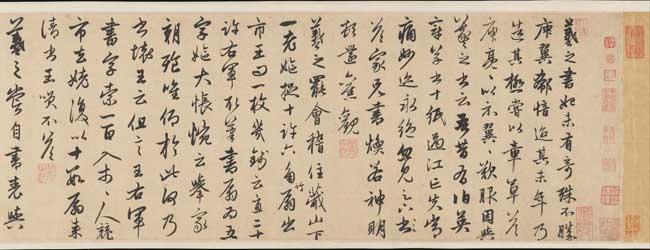 羲之書初未有奇殊不勝
庾翼郗愔迨其末年乃
造其極嘗以章草答
庾亮亮以示翼翼歎服因與
羲之書云吾昔有伯英
章草書十紙過江亡失常
痛妙迹永絕忽見足下書
答家兄書煥若神明
頓還舊觀
羲之罷會稽住蕺山下
一老姥捉十許六角竹扇出
市王問一枚幾錢云直二十
許右軍取筆書扇扇為五
字姥大悵惋云舉家
朝飧唯仰於此何乃
書壞王云但言王右軍
書字索一百入市人競
市去姥復以十數扇來
請書王笑不答
羲之嘗自書表與